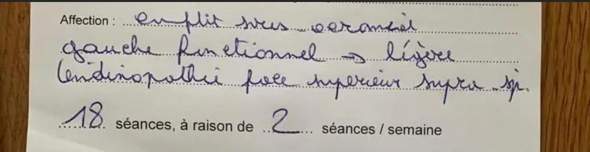 Affection : conflit sous acromial
gauche fonctionnel → légère
tendinopathie face superieur supra sp.
18 séances, à raison de 2 séances / semaine